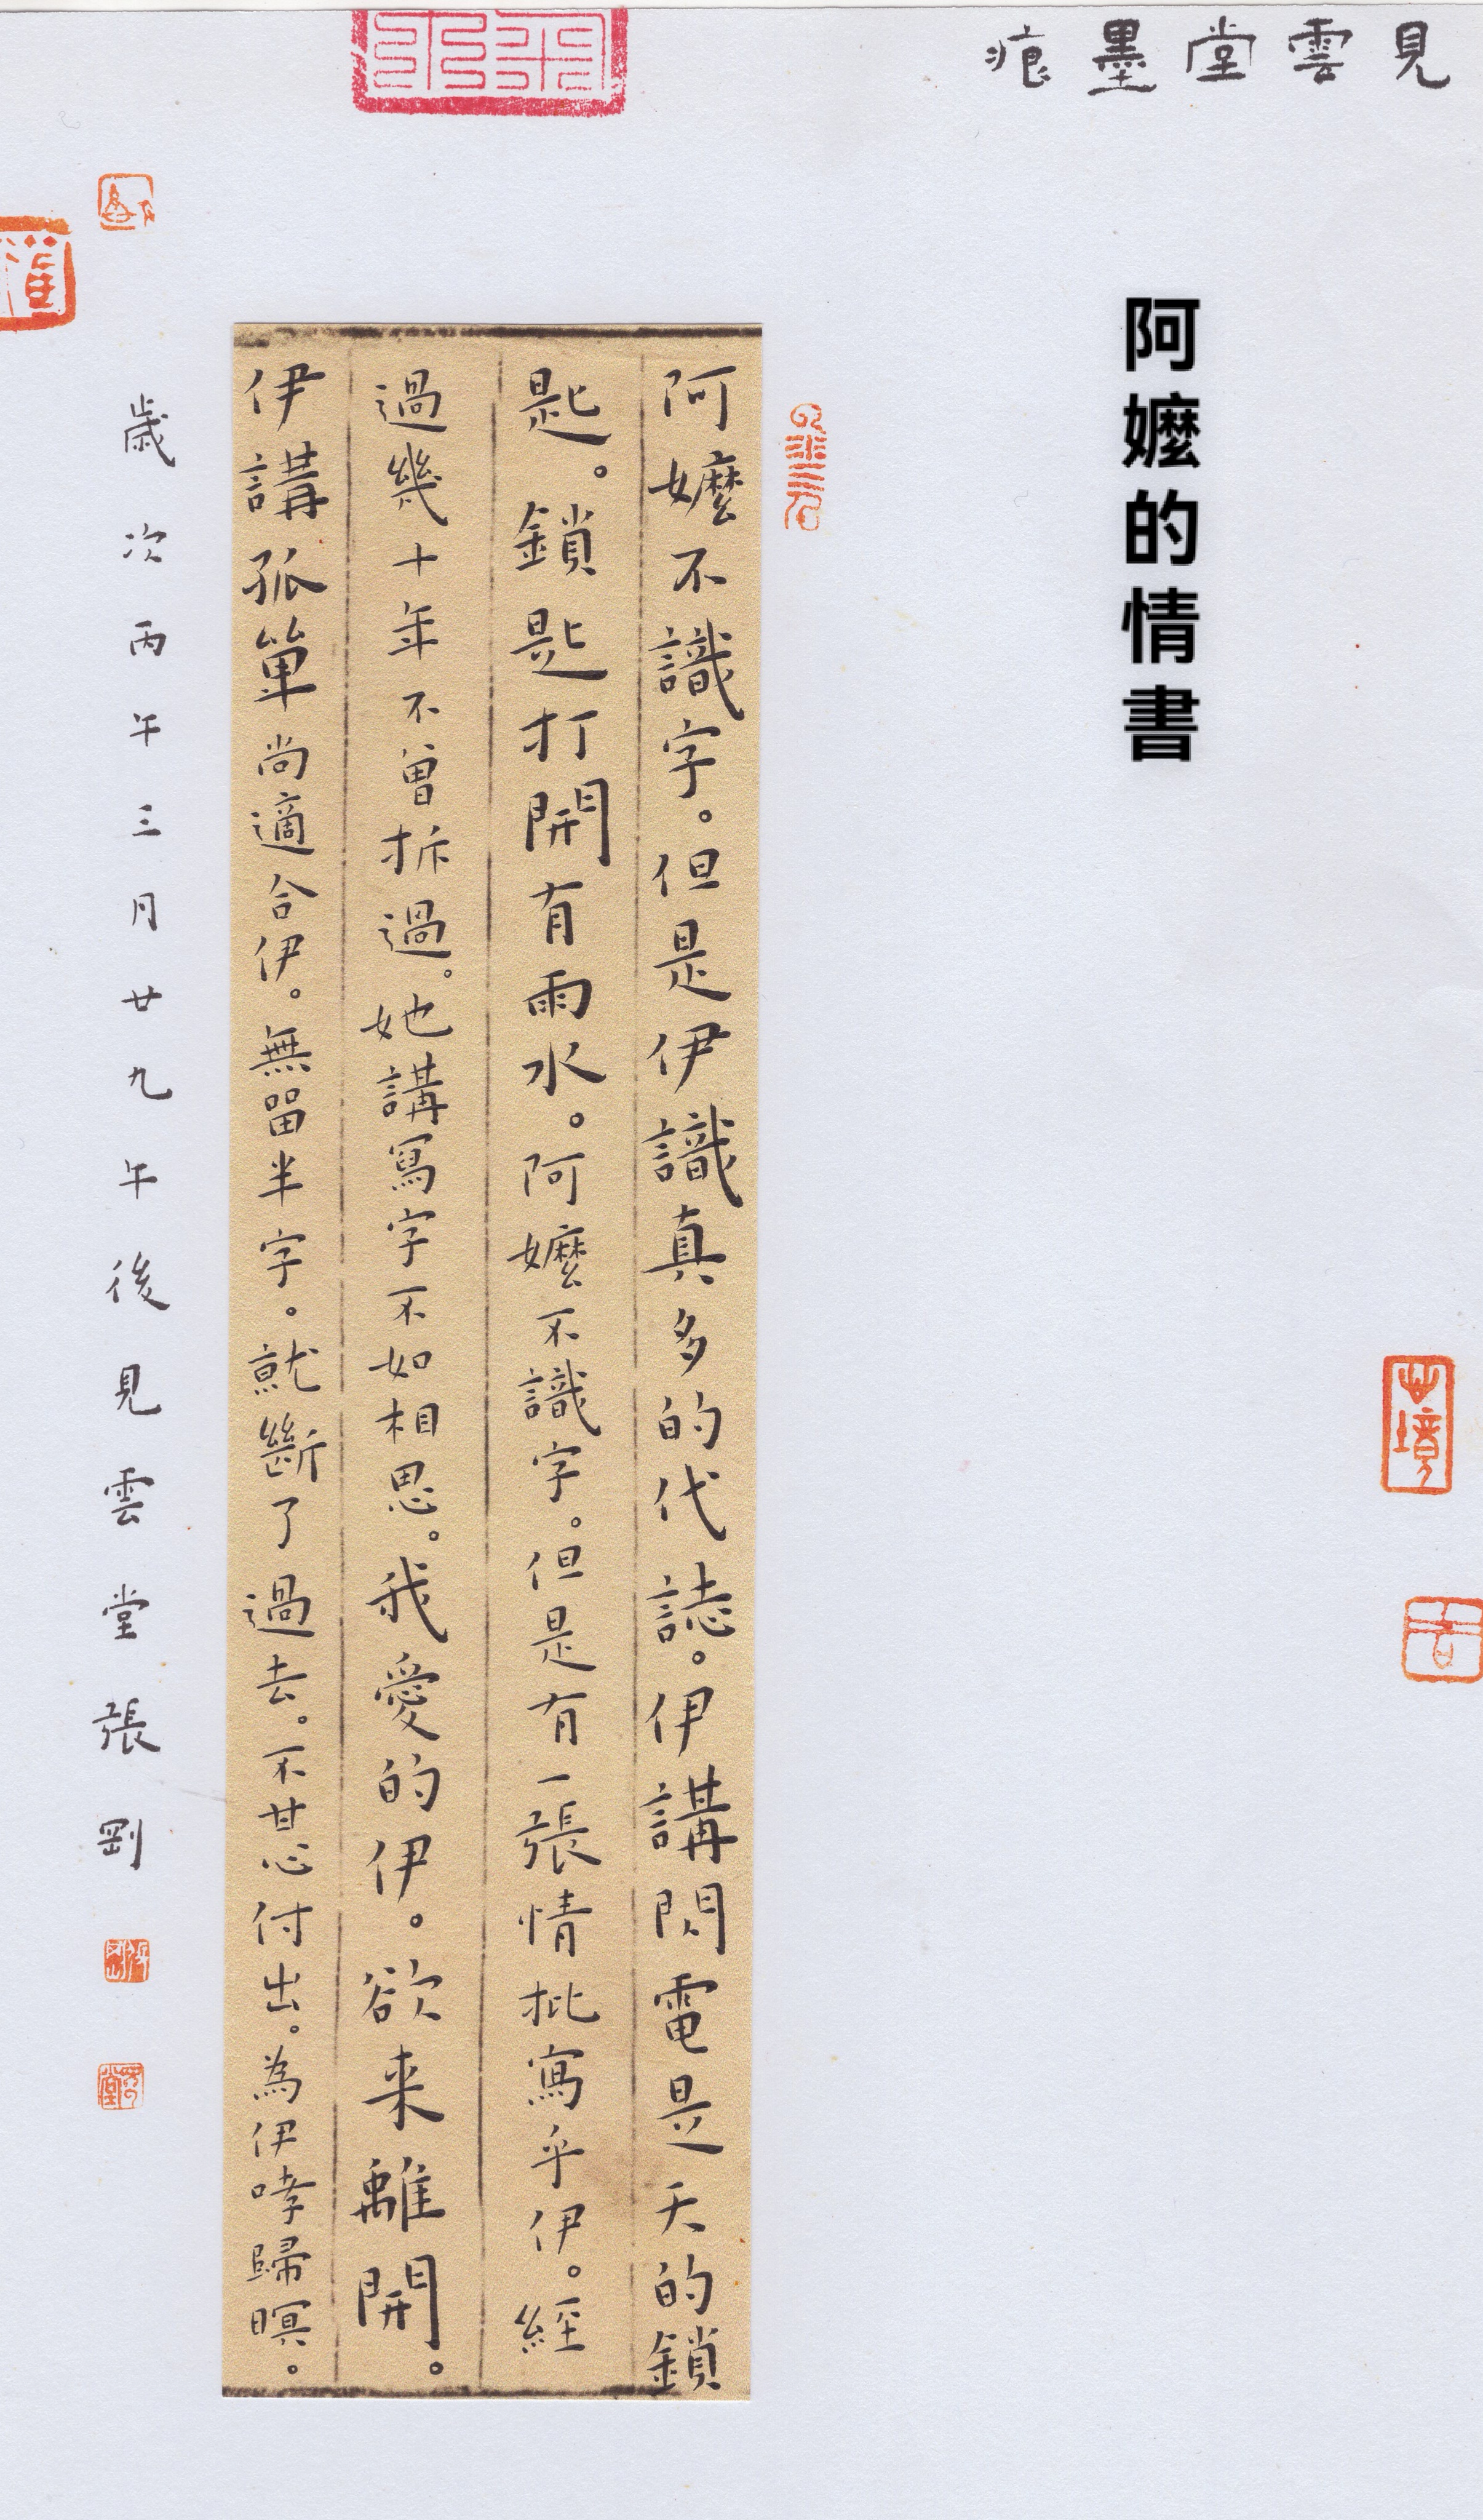 見雲堂墨痕
阿嬤的情書
阿嬤不識字。但是伊識真多的代誌。伊講閃電是天的鎖
匙。鎖匙打開有雨水。阿嬤不識字。但是有一張情批寫乎伊。經
過幾十年不曾拆過。她講寫字不如相思。我愛的伊。欲来離開。
伊講孤單尚適合伊。無留半字。就斷了過去。不甘心付出。為伊哮歸暝。
歲次丙午三月廿九午後見雲堂張剛